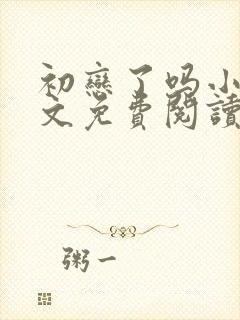 初戀了嗎小
文免費閱讀
粥一